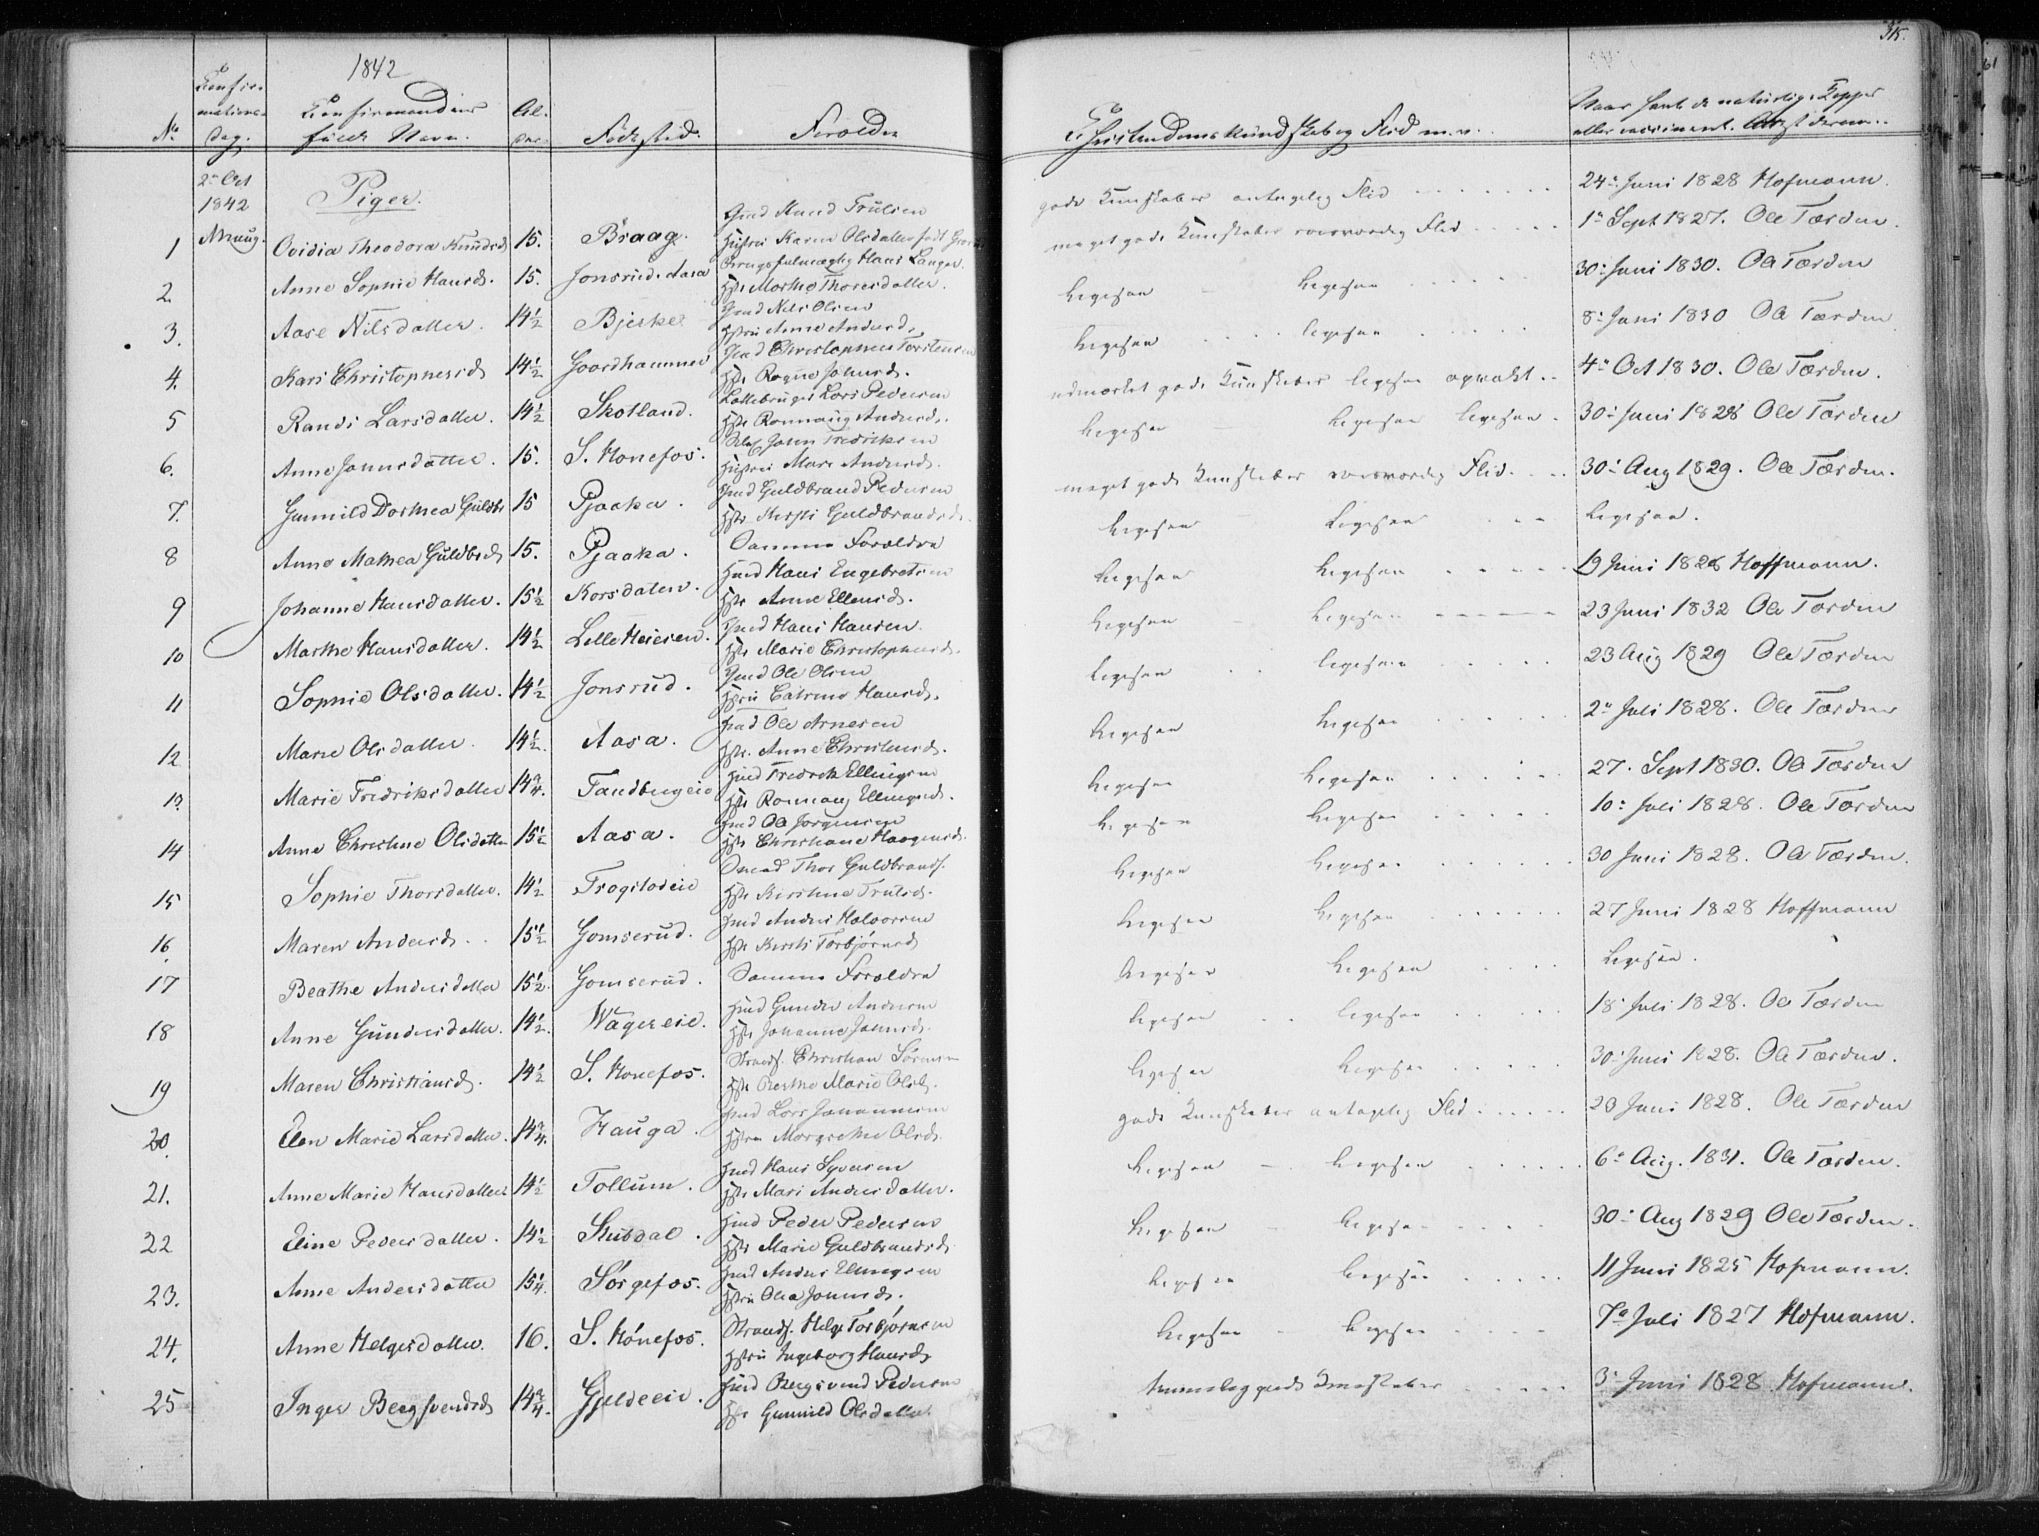 1842
315.
61
No Confirmations Dag. Confirmandens fulde Navn. Alder. Födested. Forældre Christendomskundskab og Flid m.v.
Naar havt de naturlige Kopper eller vaccineret. Attest derom.
2den Oct 1842
Piger.
1 Ovidia Theodora Knudsd 15. Braag. Gmd Knud Trulsen Hustrue Karen Olsdatter
gode Kundskaber antagelig Flid 24de Juni 1828 Hofmann.
2. Anne Sophie Hansd. 15. Jonsrud, Aasa Hans Langen. Hstr Marthe Thoresdatter.
meget gode Kundskaber roesværdig Flid 1ste Sept 1827. Ole Tærden
3. Aase Nilsdatter. 14½ Bjerke Gmd Nils Olsen Hstrue Anne Andersd.
Ligesaa Ligesaa 30te Juni 1830. Ole Tærden
4. Kari Christophersd 14½ Gaardhammer Gmd Christopher Torstensen Hstr Ragne Johnsd.
Ligesaa ligesaa 8de Juni 1830 Ole Tærden
5 Randi Larsdatter. 14½ Skotland. Lars Pedersen Hstr Rannaug Andersd.
udmærket gode Kundskaber ligesaa opvakt. 4de Oct 1830. Ole Tærden.
6. Anne Johnsdatter. 15. S. Hönefos. John Fredriksen Hustrue Mari Andersd.
Ligesaa Ligesaa ligesaa 30te Juni 1828 Ole Tærden
7. Gunnild Dorthea Guldb 15 Pjaaka. Hmd Guldbrand Pedersen Hstr Kirsti Guldbrandsd.
meget gode Kundskaber roesværdig Flid. 30te Aug 1829. Ole Tærden.
8 Anne Mathea Guldbd 15. Pjaaka. Samme Forældre
Ligesaa Ligesaa Ligesaa.
9 Johanne Hansdatter. 15½ Korsdalen. Hmd Hans Engebretsen Hstr Anne Ellensd.
Ligesaa Ligesaa 19 Juni 1828 Hoffmann.
10 Marthe Hansdatter. 14½ Lille Heieren. Gmd Hans Hansen. Hstr Marie Christophersd.
Ligesaa Ligesaa 23 Juni 1832 Ole Tærden
11 Sophie Olsdatter. 14½ Jonsrud. Gmd Ole Olsen Hstrue Catrine Hansd.
Ligesaa ligesaa 23 Aug 1829 Ole Tærden
12 Marie Olsdatter. 14½. Aasa. Hmd Ole Arnesen Hstr. Anne Christensd.
Ligesaa ligesaa 2den Juli 1828. Ole Tærden
13 Marie Fredriksdatter 14¾. Tandbergeie Hmd Fredrik Ellingsen Hstr Rannaug Ellingsd.
Ligesaa Ligesaa 27. Sept 1830. Ole Tærden
14 Anne Christine Olsdatter 15½ Aasa. Hmd Ole Jörgensen Hstr Christiane Haagensd.
Ligesaa Ligesaa 10de Juli 1828. Ole Tærden
15 Sophie Thorsdatter. 14½ Trögstadeie Thor Guldbrands. Hstr Kirstine Trulsd.
Ligesaa Ligesaa 30 Juni 1828. Ole Tærden.
16. Maren Andersd. 15½ Gomserud. Gmd Anders Halvorsen Hstr Kirsti Torbjörnsd
Ligesaa Ligesaa 27 Juni 1828 Hoffmann
17 Beathe Andersdatter 15½. Gomserud. Samme Forældre
Ligesaa Ligesaa Ligesaa.
18 Anne Gundersdatter. 14½. Wagereie. Hmd Gunder Andersen Hstr Johanne Johnsd.
Ligesaa ligesaa 18de Juli 1828. Ole Tærden
19 Maren Christiansd. 14½ S. Hönefos. Strands. Christian Sörensen Hstr Berthe Marie Olsd.
Ligesaa Ligesaa 30te Juni 1828. Ole Tærden.
20. Elen Marie Larsdatter. 14¾. Hauga. Gmd Lars Johannesen Hstrue Margrethe Olsd.
gode Kundskaber antagelig Flid 28 Juni 1828. Ole Tærden
21. Anne Marie Hansdatter 14½ Tollum. Hmd Hans Syversen Hstr Mari Andersdatter.
Ligesaa Ligesaa 6te Aug. 1831. Ole Tærden.
22 Eline Pedersdatter. 14½ Skutdal. Hmd Peder Pedersen Hstr Marie Guldbrandsd.
Ligesaa Ligesaa 30te Aug 1829 Ole Tærden.
23. Anne Andersdatter 15¼. Sörgefos. Hmd Anders Ellingsen Hstrue Olea Johnsd.
Ligesaa Ligesaa 11 Juni 1825 Hofmann.
24. Anne Helgesdatter. 16. S. Hönefos. Strands. Helge Torbjörnsen Hstrue Ingeborg Hansd
Ligesaa Ligesaa 7de Juli 1827 Hofmann.
25 Inger Bergsvendsd 14¾. Gjeldeeie. Hmd Bergsvend Pedersen Hstr Gunnild Olsdatter.
temmelig gode Kundskaber 3die Juni 1828. Hofmann.